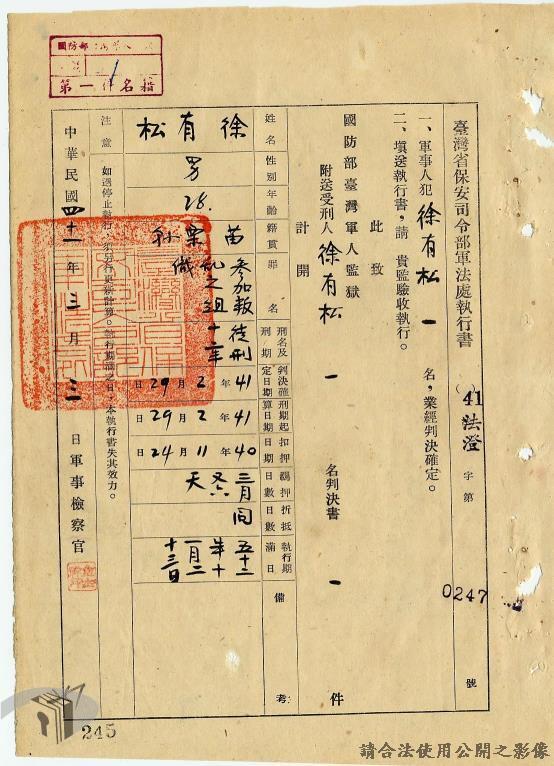 臺灣省保安司令部軍法處執行書
(41)法澄字第0247號
一、軍事人犯徐有松一名，業經判決確定。
二、填送執行書，請 貴監驗收執行。
此致
國防部臺灣軍人監獄
附送受刑人徐有松一名判決書一件
計開
姓名 性別 年齡 籍貫 罪名 刑名及刑期 判決確定日期 刑期起算日期 扣押日期 羈押日數 折抵日數 執行期滿日 備考
徐有松 男 28. 苗栗 參加叛亂之組織 徒刑十二年 41年2月29日 41年2月29日 40年11月24日 三月 天 同 五十二年十一月二十三日
注意 如遇停止執行，須另行更新計算。執行期滿之日，本執行書失其效力。
中華民國四十一年三月三日軍事檢察官
國防部
第一件名稱
245
請合法使用公開之影像